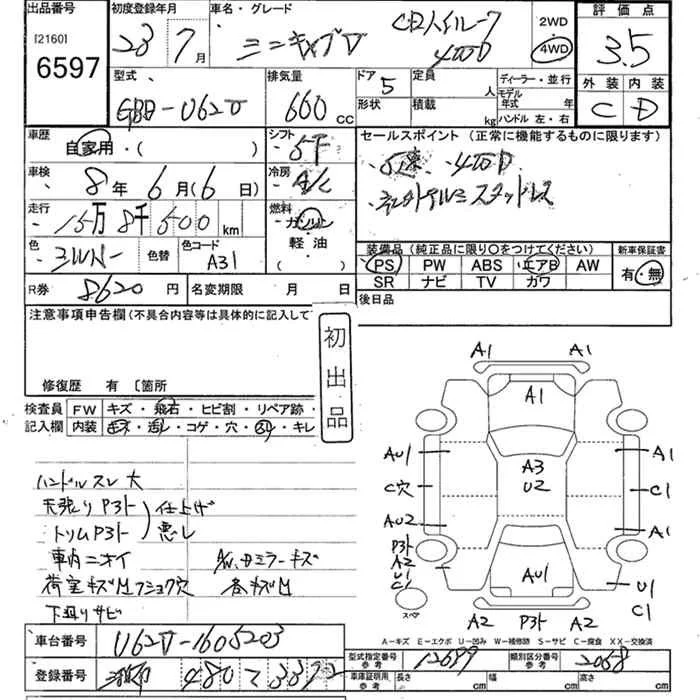 出品番号 初度登録年月 車名・グレード 評価点
[2160]
6597
23年 7月 ミニキャブV CD ハイルーフ 4WD
2WD
4WD
3.5
型式 排気量 ドア 定員 ディーラー・並行 外装 内装
EBD-U62V 660 CC 5 人 モデル年式 年 C D
形状 積載 kg ハンドル 左・右
車歴 自家用・( ) シフト 5F セールスポイント (正常に機能するものに限ります)
車検 8年 6月(6日) 冷房 A/C ・5速 ・4WD
走行 15万8千500km 燃料 ガソリン
軽油
( )
・社外アルミスタッドレス
色 シルバー 色替 色コード A31
装備品 (純正品に限り○をつけてください) 新車保証書
PS PW ABS エアB AW 有・無
SR ナビ TV カワ
R券 8620円 名変期限 月 日 後日品
注意事項申告欄 (不具合内容等は具体的に記入して
初出品
修復歴 有 [箇所
検査員 FW キズ・飛石・ヒビ割・リペア跡・
記入欄 内装 コゲ・穴・キレ
ハンドルスレ大
天張りP3ト
トリムP3ト
仕上げ
悪し
車内ニオイ
荷室キズ凹フショク穴 各キズ凹
下廻りサビ
A1 A1
A1
AU1 A3 A1
U2
C穴 C1
AU2 A1
P3ト
A2
U1 AU1 U1
C1 C1
スペア A2 P3ト A2
A-キズ E-エクボ U-凹み W-補修跡 S-サビ C-腐食 XX-交換済
車台番号 U62V-1605203
型式指定番号 参考 12699 類別区分番号 参考 2068
登録番号 480 て 3392
車庫証明用 参考 長さ cm 幅 cm 高さ cm